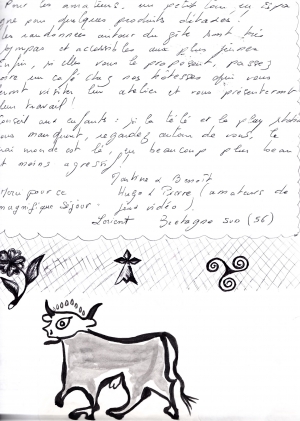 Pour les amateurs, un petit tour en Espa
gne pour quelques produits détaxés!
Les randonnées autour du gîte sont très
sympas et accessibles aux plus jeunes
Enfin, si elles vous le proposent, passez
boire un café chez nos hôtesses qui vous
feront visiter leur atelier et vous présenteront
leur travail!
Conseil aux enfants: si la télé et la play station
vous manquent, regardez autour de vous, le
vrai monde est là, peu beaucoup plus beau
et moins agressif
Martine & Benoît
pour ce Hugo & Pierre (amateurs de
magnifique séjour. jeux vidéo).
Lorient Bretagne sud (56)